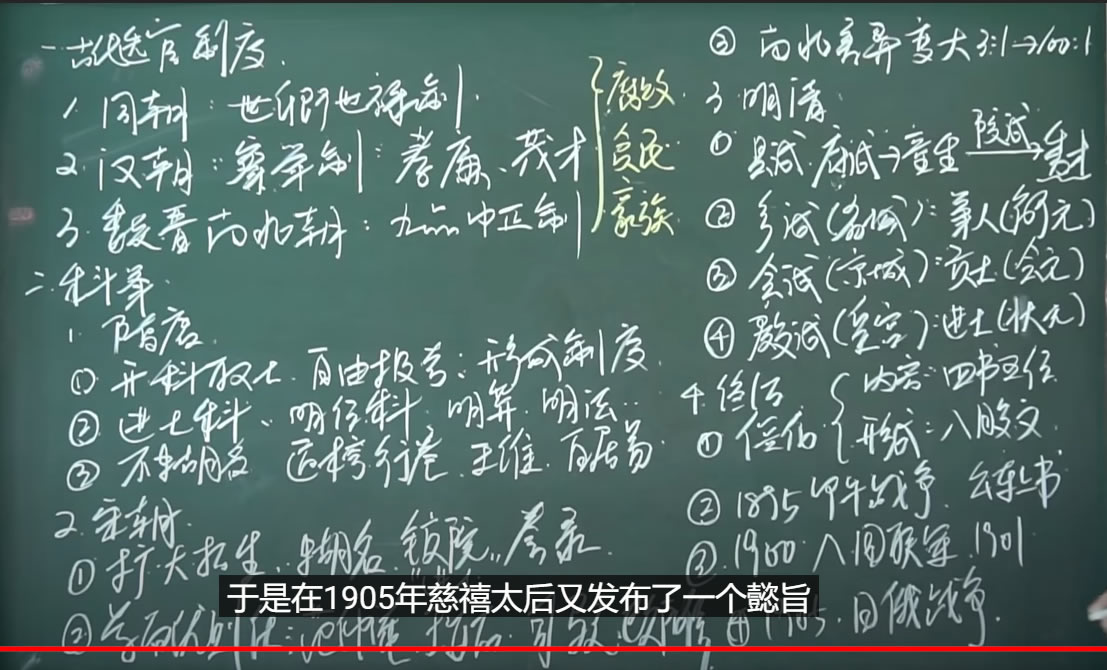 一古代选官制度.
1. 周朝：世卿世禄制.
2. 汉朝：察举制：孝廉、茂才
3. 魏晋南北朝：九品中正制
腐败
贫民
家族
二.科举
1. 隋唐.
① 开科取士.自由报考：形成制度.
② 进士科、明经科.明算.明法..
③ 不糊名 行卷.王维.白居易
2. 宋朝.
① 扩大招生.糊名. 誊录.
②
③ 南北差异变大 3:1→100:1
3 明清
① 县试.府试→童生 院试→秀才
② 乡试(省城)：举人(解元)
③ 会试(京城)：贡士(会元)
④ 殿试(皇宫)：进士(状元)
4
① 僵化 内容：四书五经
形式：八股文
② 1895 甲午战争. 公车上书
③ 1900 八国联军 1901
④ 1905. 日俄战争.
于是在1905年慈禧太后又发布了一个懿旨